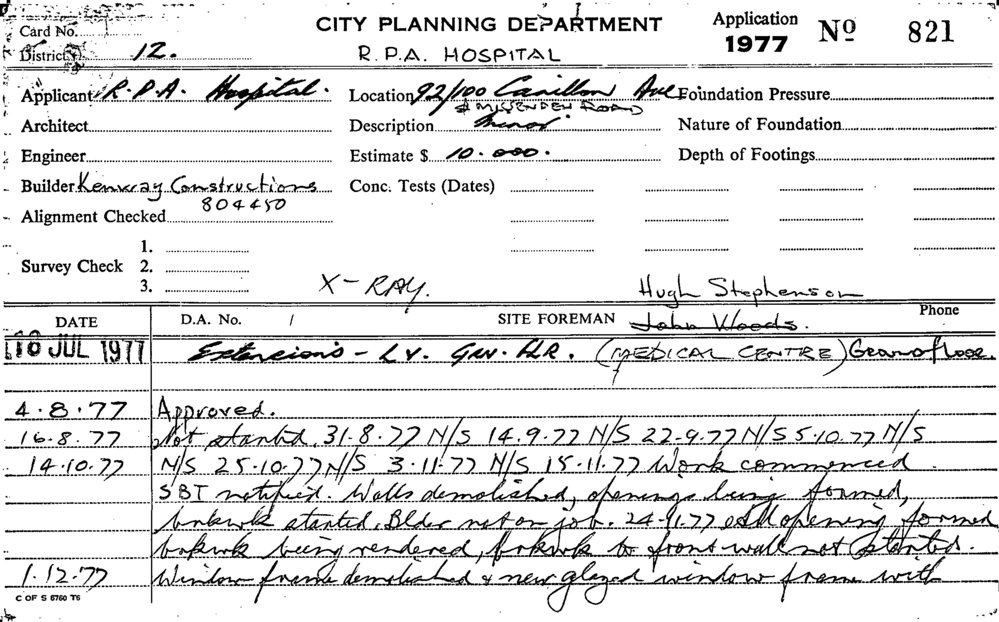 Card No.
CITY PLANNING DEPARTMENT
Application 1977 No 821
District 12.
R.P.A. HOSPITAL
Applicant R.P.A. Hospital.
Location 92/100 Carillon Ave
& MISSENDEN ROAD
Foundation Pressure
Architect
Description Minor
Nature of Foundation
Engineer
Estimate $ 10.000.
Depth of Footings
Builder Kenway Constructions
804450
Conc. Tests (Dates)
Alignment Checked
Survey Check
1.
2.
3.
X-RAY.
Hugh Stephenson
DATE
D.A. No. /
SITE FOREMAN John Woods.
Phone
18 JUL 1977 Extensions - Gnd. Flr. (MEDICAL CENTRE) Ground floor.
4.8.77 Approved.
16.8.77 Not started. 31.8.77 N/S 14.9.77 N/S 22.9.77 N/S 5.10.77 N/S
14.10.77 N/S 25.10.77 N/S 3.11.77 N/S 15.11.77 Work commenced.
SBT notified. Walls demolished, openings being formed,
brkwk started. Blder not on job. 24.11.77 opening formed
brkwk being rendered, brkwk to front wall not started.
1.12.77 Window frame demolished & new glazed window frame with
C OF S 6760 T6